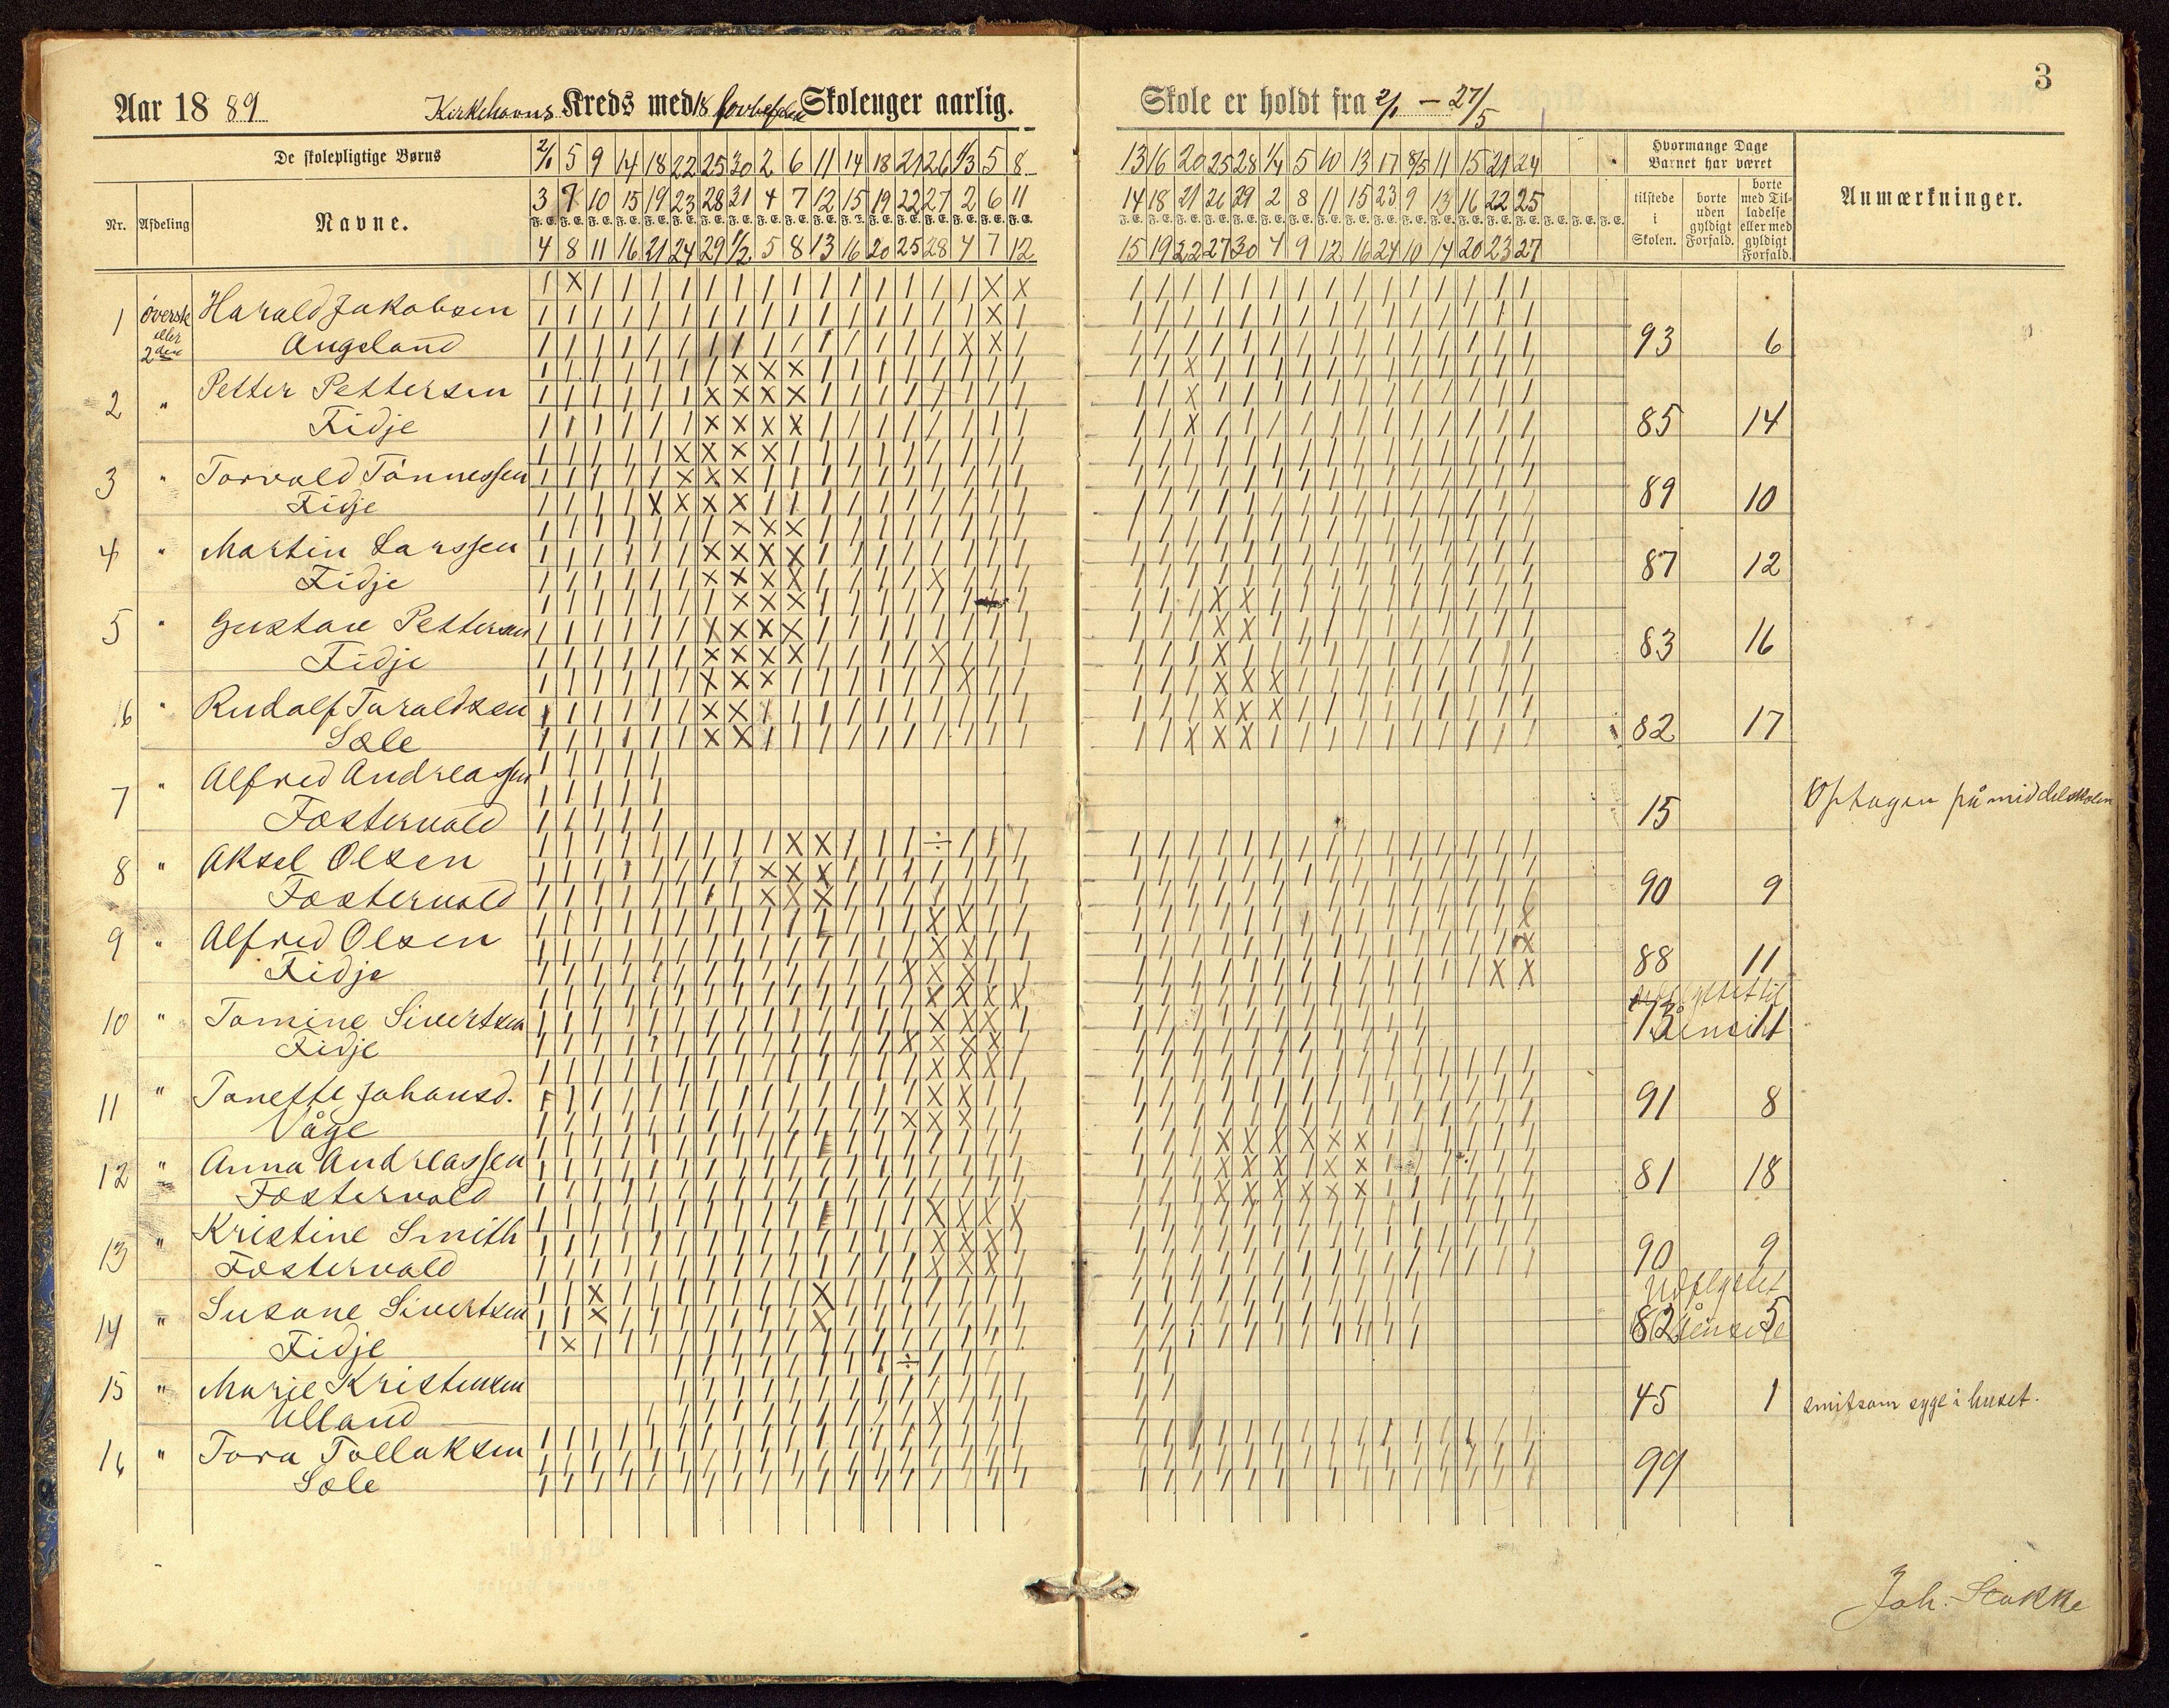 3
Aar 18 89 Kirkehavns Kreds med 18 Skoleuger aarlig. Skole er holdt fra 2/1 — 27/5
De skolepligtige Børns
Nr. Afdeling Navne.
2/1 5 9 14 18 22 25 30 2 6 11 14 18 21 26 1/3 5 8
3 7 10 15 19 23 28 31 4 7 12 15 19 22 27 2 6 11
F. E. F. E. F. E. F. E. F. E. F. E. F. E. F. E. F. E. F. E. F. E. F. E. F. E. F. E. F. E. F. E. F. E. F. E.
4 8 11 16 21 24 29 1/2 5 8 13 16 20 25 28 4 7 12
13 16 20 25 28 1/4 5 10 13 17 8/5 11 15 21 24
14 18 21 26 29 2 8 11 15 23 9 13 16 22 25
F. E. F. E. F. E. F. E. F. E. F. E. F. E. F. E. F. E. F. E. F. E. F. E. F. E. F. E. F. E. F. E. F. E. F. E.
15 19 22 27 30 4 9 12 16 24 10 14 20 23 27
Hvormange Dage
Barnet har været
tilstede i Skolen.
borte uden gyldigt Forfald.
borte med Tilladelse eller med gyldigt Forfald.
Anmærkninger.
1 øverste eller 2den Harald Jakobsen
Augeland 93 6
2 " Petter Pettersen
Fidje 85 14
3 " Torvald Tønnessen
Fidje 89 10
4 " Martin Larssen
Fidje 87 12
5 " Gustav Pettersen
Fidje 83 16
6 " Rudolf Taraldsen
Sæle 82 17
7 " Alfred Andreassen
Fostervold 15 Optagen på middelskolen
8 " Aksel Olsen
Fostervold 90 9
9 " Alfred Olsen
Fidje 88 11
10 " Tomine Sivertsen
Fidje 73 11
11 " Tonette Johansd.
Våge 91 8
12 " Anna Andreassen
Fostervold 81 18
13 " Kristine Smith
Fostervold 90 9
14 " Susane Sivertsen
Fidje 82 5
15 " Marie Kristensen
Ulland 45 1 smitsom syge i huset.
16 " Tora Tollaksen
Sæle 99
Joh. Stakke